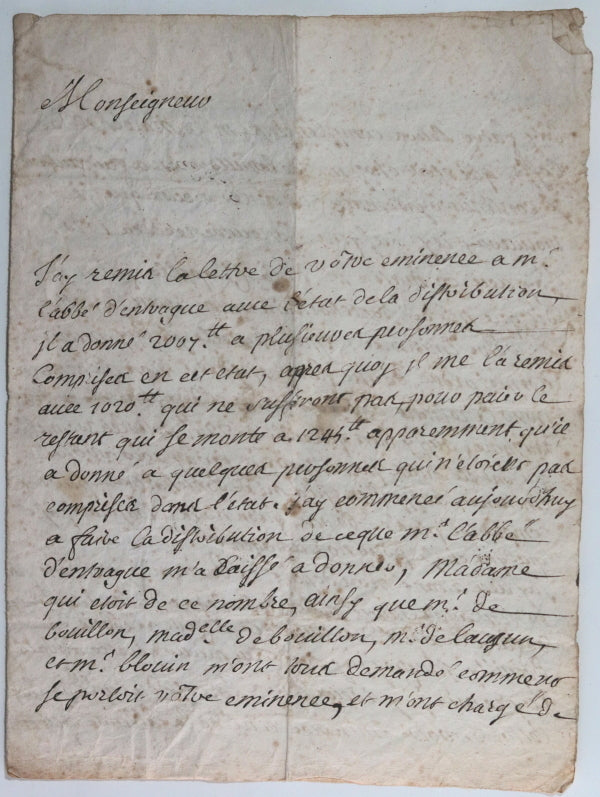 Monseigneur
J'ay remis la lettre de vôtre eminence a mr.
l'abbé d'entrague avec l'état de la distribution,
jl a donné 2007.tt a plusieures personnes
comprises en cet etat, apres quoy jl me l'a remis
avec 1020tt qui ne suffiront pas, pour paier le
restant qui se monte a 1245.tt apparemment qu'il
a donné a quelques personnes qui n'étoient pas
comprises dans l'état. j'ay commencé aujourdhuy
a faire la distribution de ceque mr. l'abbé
d'entrague m'a laissé a donner, Madame
qui etoit de ce nombre, ainsy que mr. de
bouillon, madelle. de bouillon, mr. de lauzun,
et mr. blouin m'ont tous demandé comment
se portoit vôtre eminence, et m'ont chargé de